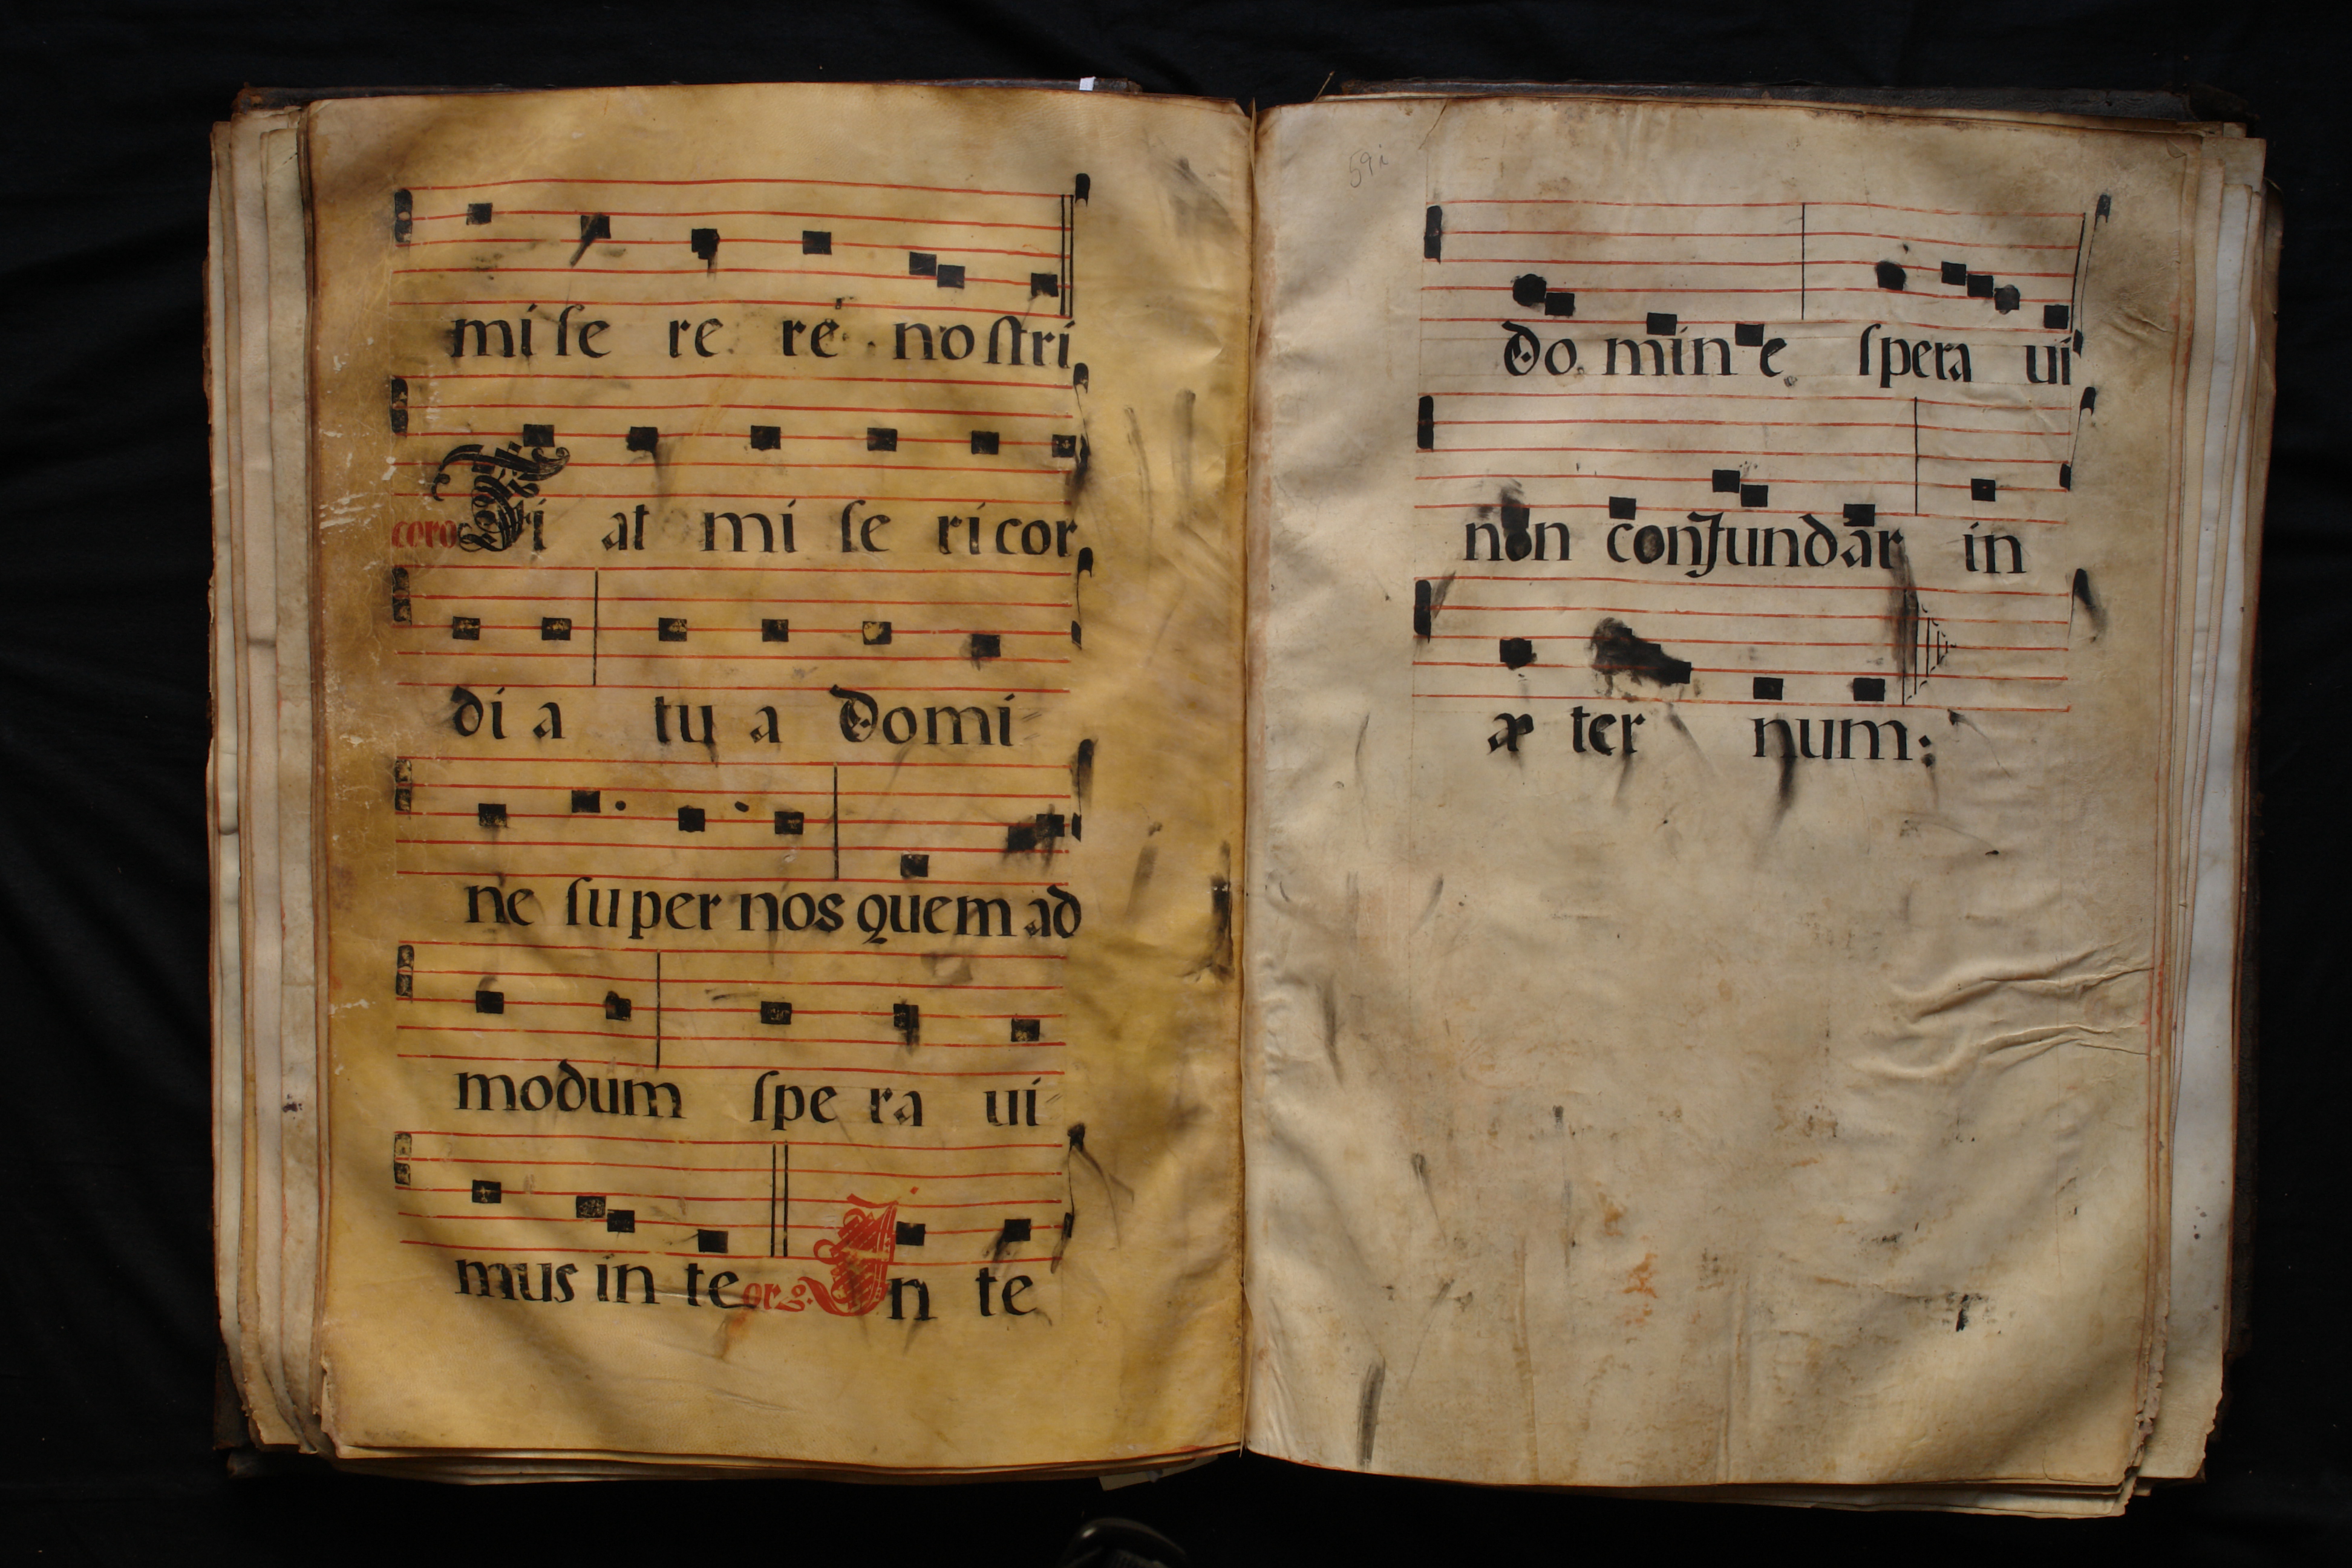 miſe re re noſtri
coro Fi at mi ſe ricor
di a tu a Domi
ne ſuper nos quem ad
modum ſpe ra ui
mus in te org. In te
59i
Do mine ſpera ui
non confundar in
æ ter num: